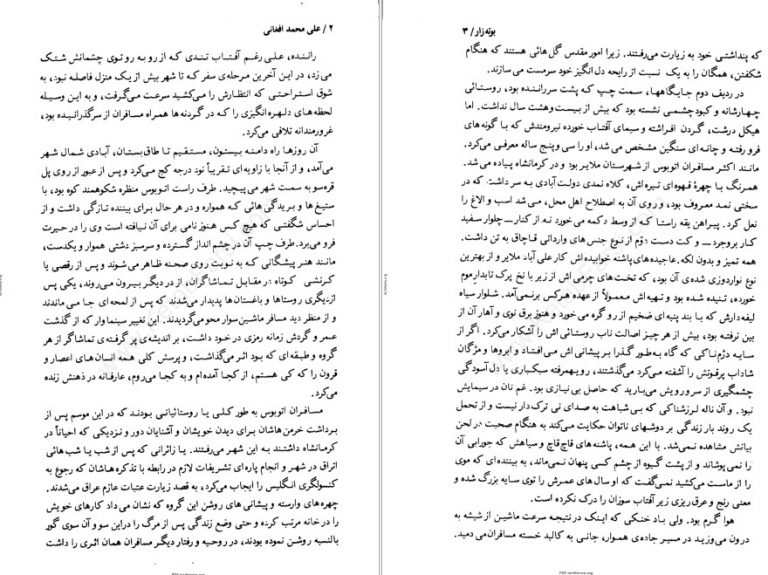 ۲ / علی محمد افغانی
راننده، علی رغم آفتاب تندی که از روبه روتوی چشمانش شتک
می زد، در این آخرین مرحله‌ی سفر که تا شهر بیش از یک منزل فاصله نبود، به
شوق استراحتی که انتظارش را می‌کشید سرعت می‌گرفت، و به این وسیله
لحظه های دلهره انگیزی را که در گردنه ها همراه مسافران از سرگذرانیده بود،
غرورمندانه تلافی می‌کرد.
آن روزها راه دامنه بیستون، مستقیم تا طاق‌بستان، آبادی شمال شهر
می‌آمد، و از آنجا با زاویه‌ای تقریباً نود درجه کج می‌کرد و پس از عبور از روی پل
قره‌سو به سمت شهر می‌پیچید. طرف راست اتوبوس منظره شکوهمند کوه بود، با
ستیغ ها و بریدگی هائی که همواره و در هر حال برای بیننده تازگی داشت و از
احساس شگفتی که هیچ کس هنوز نامی برای آن نیافته است وی را در حیرت
فرو می‌برد. طرف چپ آن در چشم انداز گسترده و سرسبز دشتی هموار و یکدست،
مانند هنر پیشگانی که به نوبت روی صحنه ظاهر می‌شوند و پس از رقصی یا
کرنشی کوتاه در مقابل تماشاگران، از در دیگر بیرون می‌روند، یکی پس
از دیگری روستاها و باغستان‌ها پدیدار می‌شدند که پس از لمحه‌ای جا می ماندند
و از منظر دید مسافر ماشین سوار محو می‌گردیدند. این تغییر سینماوار که از گذشت
عمر و گردش زمانه رمزی در خود داشت، بر اندیشه‌ی پر گرفته‌ی تماشاگر از هر
گروه و طبقه‌ای که بود اثر می‌گذاشت، و پرسش کلی همه انسان های اعصار و
قرون را که کی هستم، از کجا آمده ام و به کجا می‌روم، عارفانه در ذهنش زنده
می‌کرد.
مسافران اتوبوس به طور کلی یا روستائیانی بودند که در این موسم پس از
برداشت خرمن‌هاشان برای دیدن خویشان و آشنایان دور و نزدیکی که احیاناً در
کرمانشاه داشتند به این شهر می‌رفتند. یا زائرانی که پس از شب یا شب هائی
اتراق در شهر و انجام پاره‌ای تشریفات لازم در رابطه با تذکره‌هاشان که رجوع به
کنسولگری انگلیس را ایجاب می‌کرد، به قصد زیارت عتبات عازم عراق می‌شدند.
چهره‌های وارسته و پیشانی های روشن این گروه که نشان می داد کارهای خویش
را در خانه مرتب کرده و حتی وضع زندگی پس از مرگ را در این سو و آن سوی گور
بالنسبه روشن نموده بودند، در روحیه و رفتار دیگر مسافران همان اثری را داشت
بوته‌زار / ۳
که پنداشتی خود به زیارت می‌رفتند. زیرا امور مقدس گل هائی هستند که هنگام
شکفتن، همگان را به یک نسبت از رایحه دل انگیز خود سرمست می سازند.
در ردیف دوم جایگاهها، سمت چپ که پشت سر راننده بود، روستائی
چهارشانه و کبودچشمی نشسته بود که بیش از بیست و هشت سال نداشت. اما
هیکل درشت، گردن افراشته و سیمای آفتاب خورده نیرومندش که با گونه های
فرو رفته و چانه‌ای سنگین مشخص می شد، او را سی و پنج ساله معرفی می‌کرد.
مانند اکثر مسافران اتوبوس از شهرستان ملایر بود و در کرمانشاه پیاده می شد.
همرنگ با چهرهٔ قهوه ای تیره‌اش، کلاه نمدی دولت آبادی به سر داشت که در
سختی نمد معروف بود، و روی آن به اصطلاح اهل محل، می شد اسب و الاغ را
نعل کرد. پیراهن یقه راستا که از وسط دکمه می خورد نه از کنار— چلوار سفید
کار بروجرد — و کت دست دوم از نوع جنس های وارداتی قاچاق به تن داشت.
همه تمیز و بدون لکه. عاجیده‌های پاشنه خوابیده اش کار علی‌آباد ملایر و از بهترین
نوع نواردوزی شده‌ی آن بود، که تخت‌های چرمی اش از زیر با نخ پرک تابدار موم
خورده، تنیده شده بود و تهیه‌اش معمولاً از عهده هرکس برنمی‌آمد. شلوار سیاه
لیفه‌دارش که با بند پنبه ای ضخیم از رو گره می خورد و هنوز برق نوی و آهار آن از
بین نرفته بود، بیش از هر چیز اصالت ناب روستائی اش را آشکار می‌کرد. اگر از
سایه دژم‌ناکی که گاه به‌طور گذرا بر پیشانی اش می‌افتاد و ابروها و مژگان
شاداب پرقوتش را آشفته می‌کرد می‌گذشتند، رویهمرفته سبکباری یا دل آسودگی
چشمگیری از سر و رویش می‌بارید که حاصل بی نیازی بود. غم نان در سیمایش
نبود. و آن ناله لرزشناکی که بی شباهت به صدای نی ترک‌دار نیست و از تحمل
یک روند بار زندگی بر دوشهای ناتوان حکایت می‌کند به هنگام صحبت در لحن
بیانش مشاهده نمی‌شد. با این همه، پاشنه‌های قاچ‌قاچ و سیاهش که جورابی آن
را نمی‌پوشاند و از پشت گیوه از چشم کسی پنهان نمی‌ماند، به بیننده‌ای که موی
را از ماست می‌کشید نمی‌گفت که او سال های عمرش را توی سایه بزرگ شده و
معنی رنج و عرق ریزی زیر آفتاب سوزان را درک نکرده است.
هوا گرم بود. ولی باد خنکی که اینک در نتیجه سرعت ماشین از شیشه به
درون می‌وزید در مسیر جاده‌ی هموار، جانی به کالبد خسته مسافران می دمید.